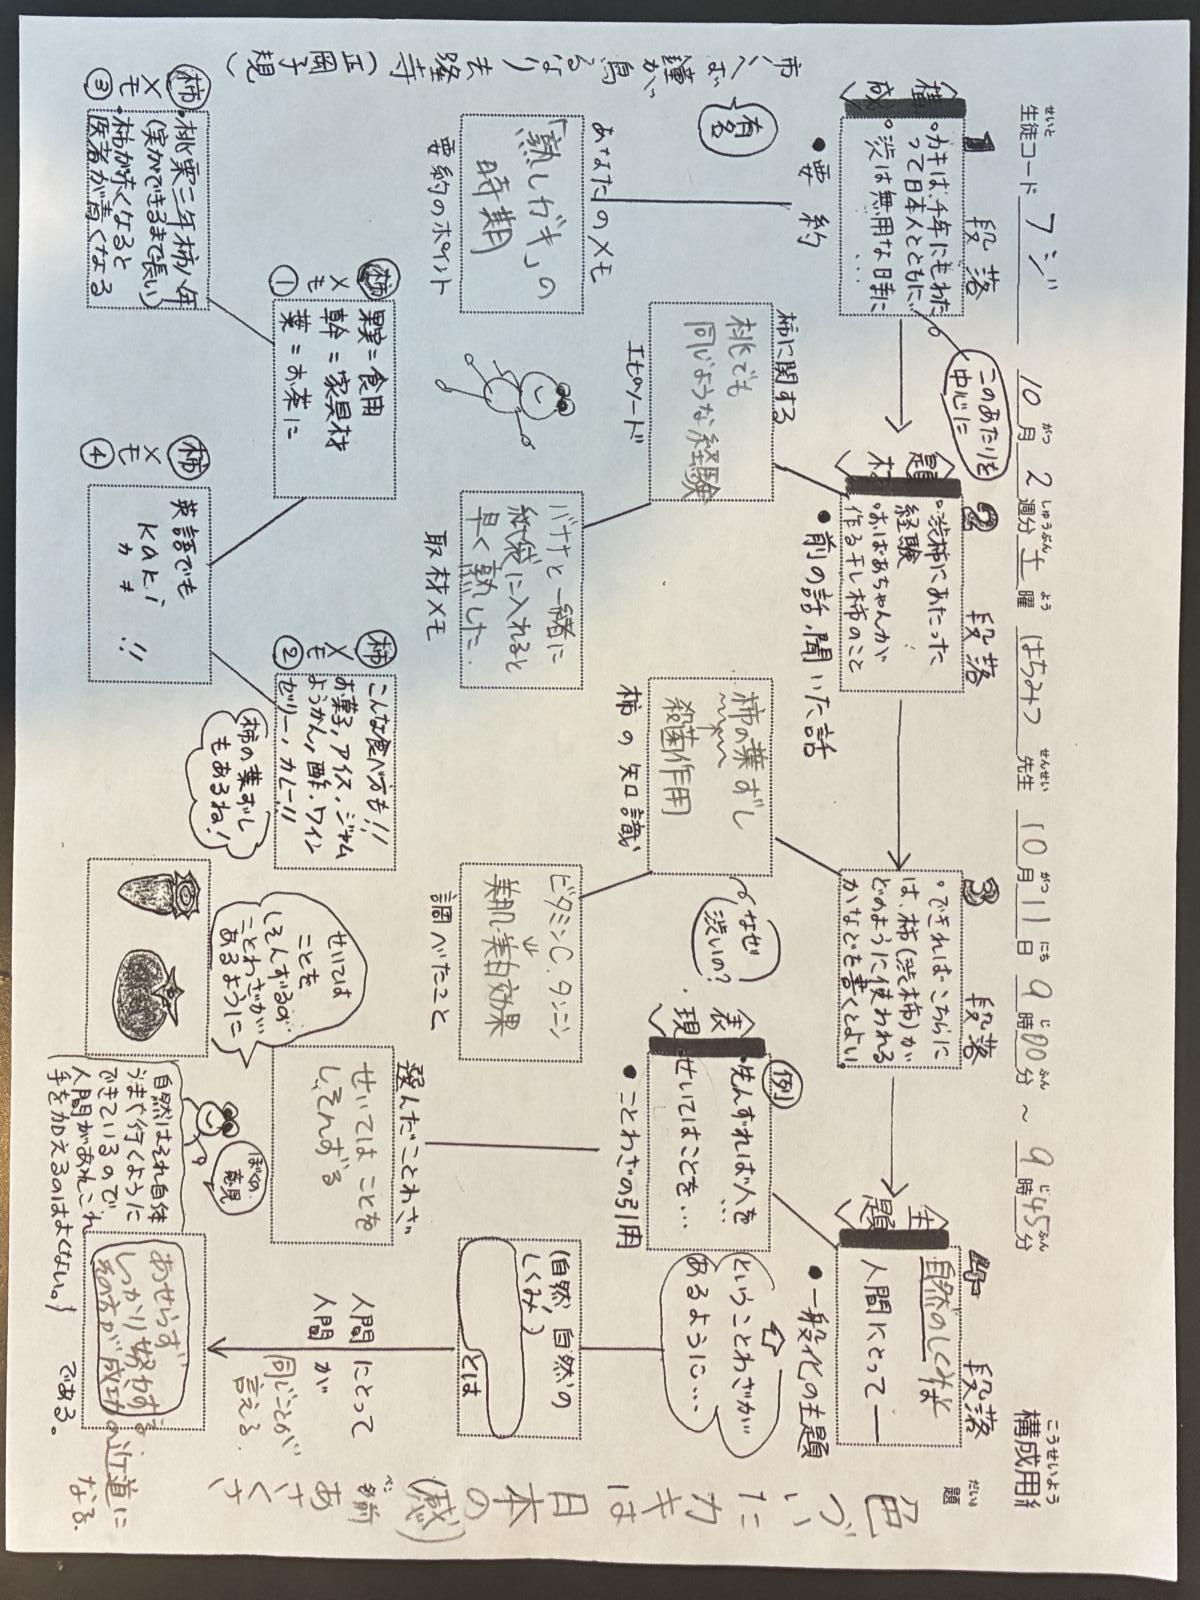 構成用紙
こうせいよう
生徒コード フジ 10月2週分 土曜 はちみつ 先生 10月11日 9時00分～9時45分
せいと がつ しゅうぶん よう せんせい がつ にち じ ふん じ ふん
題
だい
色づいたカキは日本の(感)
名前 あさくさ
1 段落
〈構成〉
。カキは、千年にもわた
って日本人とともに…
。渋は無用な時に
・・・
このあたりを
中心に
●要約
有名
あなたのメモ
「熟しガキ」の
時期
要約のポイント
2 段落
〈題材〉
。渋柿にあたった
経験
。おばあちゃんが
作る干し柿のこと
●前の話、聞いた話
柿に関する
桃でも
同じような経験
エピソード
バナナと一緒に
紙袋に入れると
早く熟した.
取材メモ
3 段落
。できれば、こちらに
は、柿(渋柿)が
どのように使われる
かなどを書くとよい。
なぜ
渋いの?
柿の葉ずし
殺菌作用
柿の知識
ビタミンC、タンニン
↓
美肌・美白効果
調べたこと
4 段落
〈主題〉
自然のしくみは
人間にとって―
●一般化の主題
ということわざが
あるように…
〈表現〉
例
・先んずれば人を
・・・
・せいてはことを…
●ことわざの引用
選んだことわざ
せいては ことを
しそんずる
(自然、自然の
しくみ)
とは
人間にとって
人間が
同じことが
言える.
あせらず
しっかり努力する
その方が成功の近道に
なる.
である。
柿メモ①
果実=食用
幹=家具材
葉=お茶に
柿メモ②
こんな食べ方も!!
お菓子、アイス、ジャム
ようかん、酢、ワイン
ゼリー、カレー!!
柿の葉ずし
もあるね!
柿メモ③
・桃栗三年柿八年
(実ができるまで長い)
・柿が赤くなると
医者が青くなる
柿メモ④
英語でも
kaki
カキ
!!
せいては
ことを
しそんずるの
ことわざが
あるように
ぼくの
意見
自然はそれ自体
うまく行くように
できているので
人間があれこれ
手を加えるのはよくない。
鐘が
なり
法隆寺
(正岡子規)